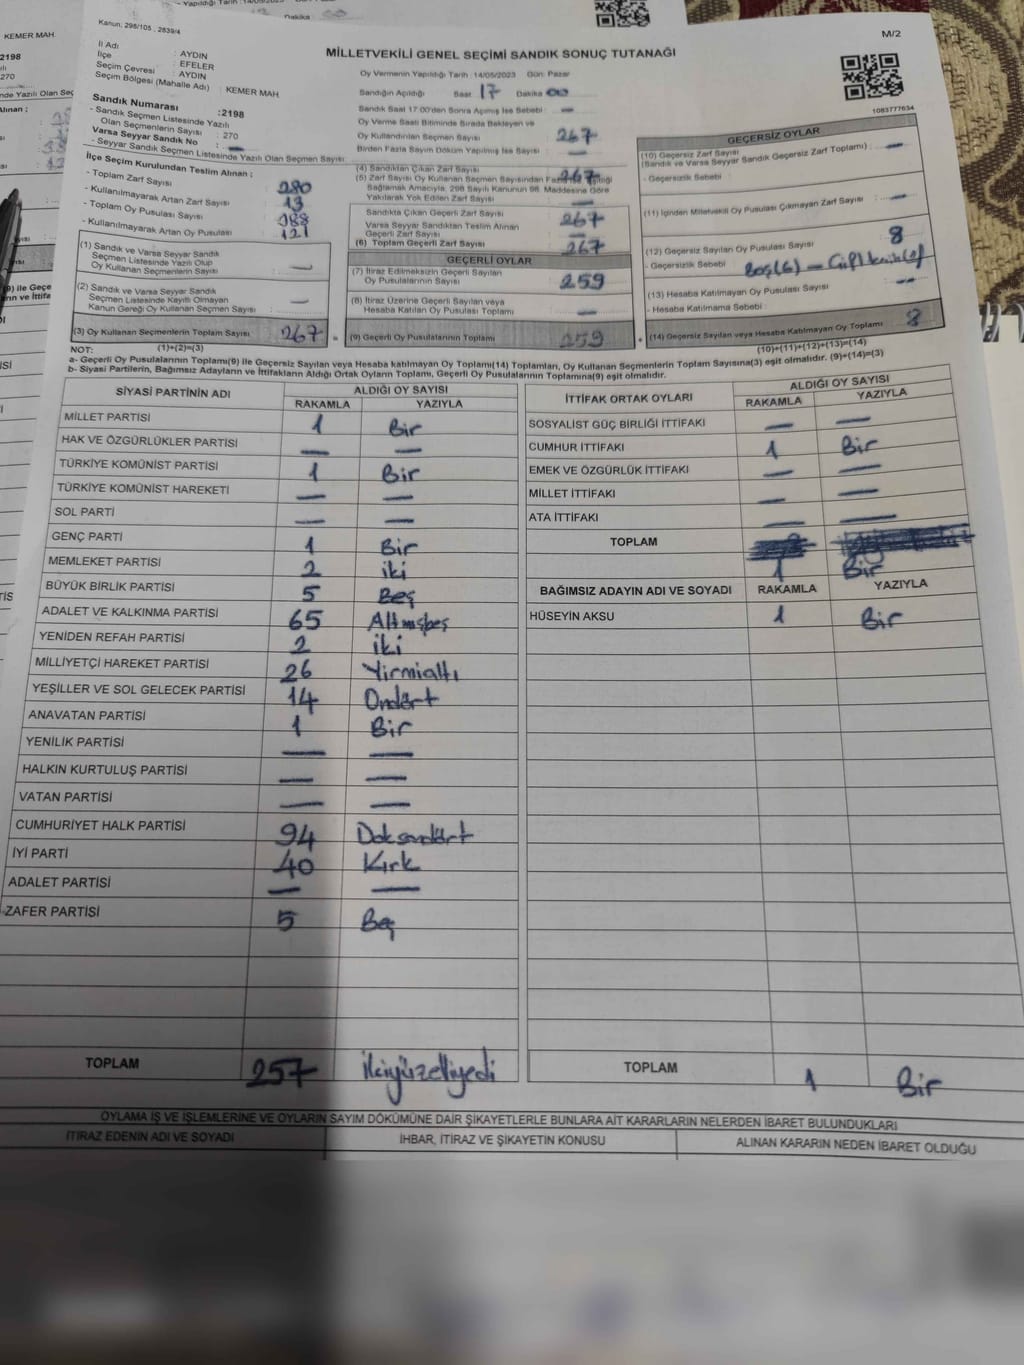 Kanun: 298/105 , 2839/4
M/2
MİLLETVEKİLİ GENEL SEÇİMİ SANDIK SONUÇ TUTANAĞI
İl Adı : AYDIN
İlçe : EFELER
Seçim Çevresi : AYDIN
Seçim Bölgesi (Mahalle Adı) : KEMER MAH
Sandık Numarası :2198
- Sandık Seçmen Listesinde Yazılı
Olan Seçmenlerin Sayısı : 270
Varsa Seyyar Sandık No : —
- Seyyar Sandık Seçmen Listesinde Yazılı Olan Seçmen Sayısı:
İlçe Seçim Kurulundan Teslim Alınan :
- Toplam Zarf Sayısı : 280
- Kullanılmayarak Artan Zarf Sayısı : 13
- Toplam Oy Pusulası Sayısı : 388
- Kullanılmayarak Artan Oy Pusulası : 121
(1) Sandık ve Varsa Seyyar Sandık
Seçmen Listesinde Yazılı Olup
Oy Kullanan Seçmenlerin Sayısı : —
(2) Sandık ve Varsa Seyyar Sandık
Seçmen Listesinde Kayıtlı Olmayan
Kanun Gereği Oy Kullanan Seçmen Sayısı : —
(3) Oy Kullanan Seçmenlerin Toplam Sayısı : 267
(1)+(2)=(3)
Oy Vermenin Yapıldığı Tarih :14/05/2023 Gün: Pazar
Sandığın Açıldığı Saat 17 Dakika 00
Sandık Saat 17:00'den Sonra Açılmış İse Sebebi : —
Oy Verme Saati Bitiminde Sırada Bekleyen ve
Oy Kullandırılan Seçmen Sayısı : 267
Birden Fazla Sayım Döküm Yapılmış İse Sayısı : —
(4) Sandıktan Çıkan Zarf Sayısı : 267
(5) Zarf Sayısı Oy Kullanan Seçmen Sayısından
Sağlamak Amacıyla, 298 Sayılı Kanunun 98. Maddesine Göre
Yakılarak Yok Edilen Zarf Sayısı : —
Sandıkta Çıkan Geçerli Zarf Sayısı : 267
Varsa Seyyar Sandıktan Teslim Alınan
Geçerli Zarf Sayısı : —
(6) Toplam Geçerli Zarf Sayısı : 267
GEÇERLİ OYLAR
(7) İtiraz Edilmeksizin Geçerli Sayılan
Oy Pusulalarının Sayısı : 259
(8) İtiraz Üzerine Geçerli Sayılan veya
Hesaba Katılan Oy Pusulası Toplamı : —
(9) Geçerli Oy Pusulalarının Toplamı : 259
1083777634
GEÇERSİZ OYLAR
(10) Geçersiz Zarf Sayısı
(Sandık ve Varsa Seyyar Sandık Geçersiz Zarf Toplamı) : —
- Geçersizlik Sebebi :
(11) İçinden Milletvekili Oy Pusulası Çıkmayan Zarf Sayısı : —
(12) Geçersiz Sayılan Oy Pusulası Sayısı : 8
- Geçersizlik Sebebi : Boş(6) —
(13) Hesaba Katılmayan Oy Pusulası Sayısı : —
- Hesaba Katılmama Sebebi :
(14) Geçersiz Sayılan veya Hesaba Katılmayan Oy Toplamı : 8
(10)+(11)+(12)+(13)=(14)
NOT:
a- Geçerli Oy Pusulalarının Toplamı(9) ile Geçersiz Sayılan veya Hesaba katılmayan Oy Toplamı(14) Toplamları, Oy Kullanan Seçmenlerin Toplam Sayısına(3) eşit olmalıdır. (9)+(14)=(3)
b- Siyasi Partilerin, Bağımsız Adayların ve İttifakların Aldığı Ortak Oyların Toplamı, Geçerli Oy Pusulalarının Toplamına(9) eşit olmalıdır.
SİYASİ PARTİNİN ADI ALDIĞI OY SAYISI
RAKAMLA YAZIYLA
MİLLET PARTİSİ 1 Bir
HAK VE ÖZGÜRLÜKLER PARTİSİ — —
TÜRKİYE KOMÜNİST PARTİSİ 1 Bir
TÜRKİYE KOMÜNİST HAREKETİ — —
SOL PARTİ — —
GENÇ PARTİ 1 Bir
MEMLEKET PARTİSİ 2 iki
BÜYÜK BİRLİK PARTİSİ 5 Beş
ADALET VE KALKINMA PARTİSİ 65 Altmışbeş
YENİDEN REFAH PARTİSİ 2 iki
MİLLİYETÇİ HAREKET PARTİSİ 26 Yirmialtı
YEŞİLLER VE SOL GELECEK PARTİSİ 14 Ondört
ANAVATAN PARTİSİ 1 Bir
YENİLİK PARTİSİ — —
HALKIN KURTULUŞ PARTİSİ — —
VATAN PARTİSİ — —
CUMHURİYET HALK PARTİSİ 94 Doksandört
İYİ PARTİ 40 Kırk
ADALET PARTİSİ — —
ZAFER PARTİSİ 5 Beş
TOPLAM 257 ikiyüzelliyedi
İTTİFAK ORTAK OYLARI ALDIĞI OY SAYISI
RAKAMLA YAZIYLA
SOSYALİST GÜÇ BİRLİĞİ İTTİFAKI — —
CUMHUR İTTİFAKI 1 Bir
EMEK VE ÖZGÜRLÜK İTTİFAKI — —
MİLLET İTTİFAKI — —
ATA İTTİFAKI — —
TOPLAM 1 Bir
BAĞIMSIZ ADAYIN ADI VE SOYADI RAKAMLA YAZIYLA
HÜSEYİN AKSU 1 Bir
TOPLAM 1 Bir
OYLAMA İŞ VE İŞLEMLERİNE VE OYLARIN SAYIM DÖKÜMÜNE DAİR ŞİKAYETLERLE BUNLARA AİT KARARLARIN NELERDEN İBARET BULUNDUKLARI
İTİRAZ EDENİN ADI VE SOYADI İHBAR, İTİRAZ VE ŞİKAYETİN KONUSU ALINAN KARARIN NEDEN İBARET OLDUĞU